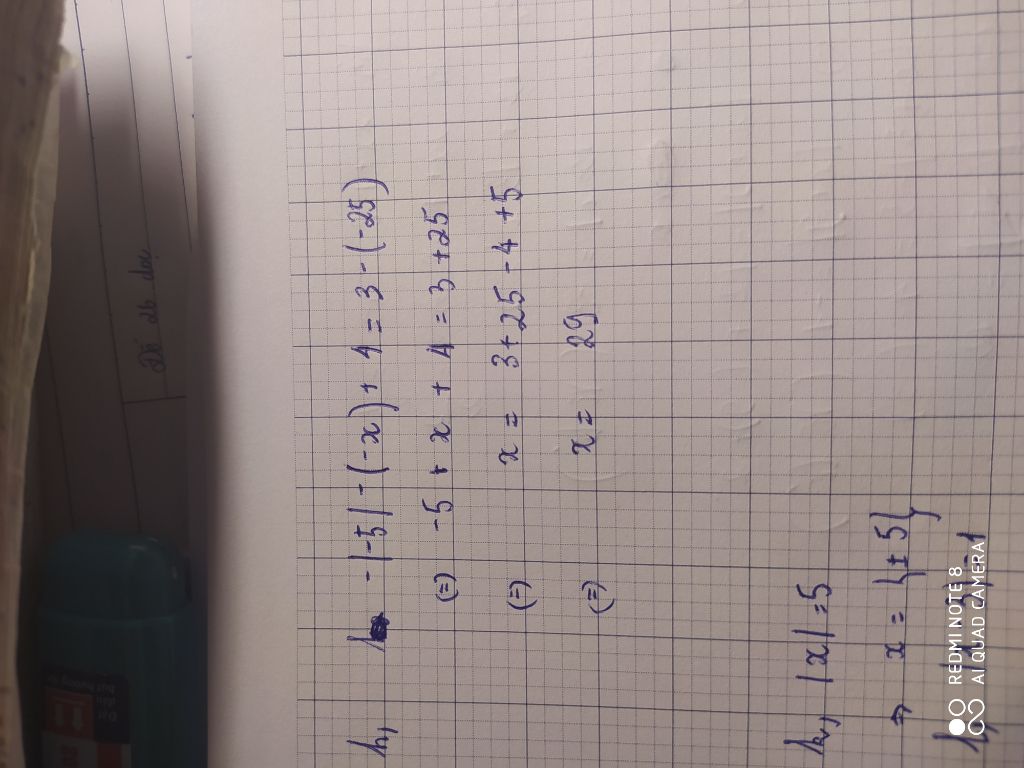 h, -|-5| - (-x) + 4 = 3 - (-25)
(=) -5 + x + 4 = 3 + 25
(=) x = 3 + 25 - 4 + 5
(=) x = 29
k, |x| = 5
=> x = {± 5}
REDMI NOTE 8
AI QUAD CAMERA